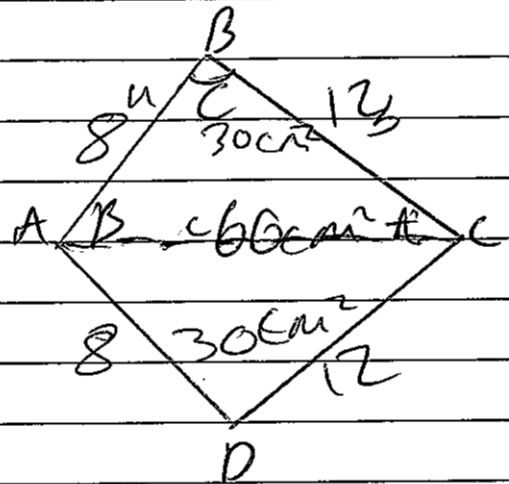 B
8 u C 12 b
30cm²
A B c 60cm² A C
8 30cm² 12
D